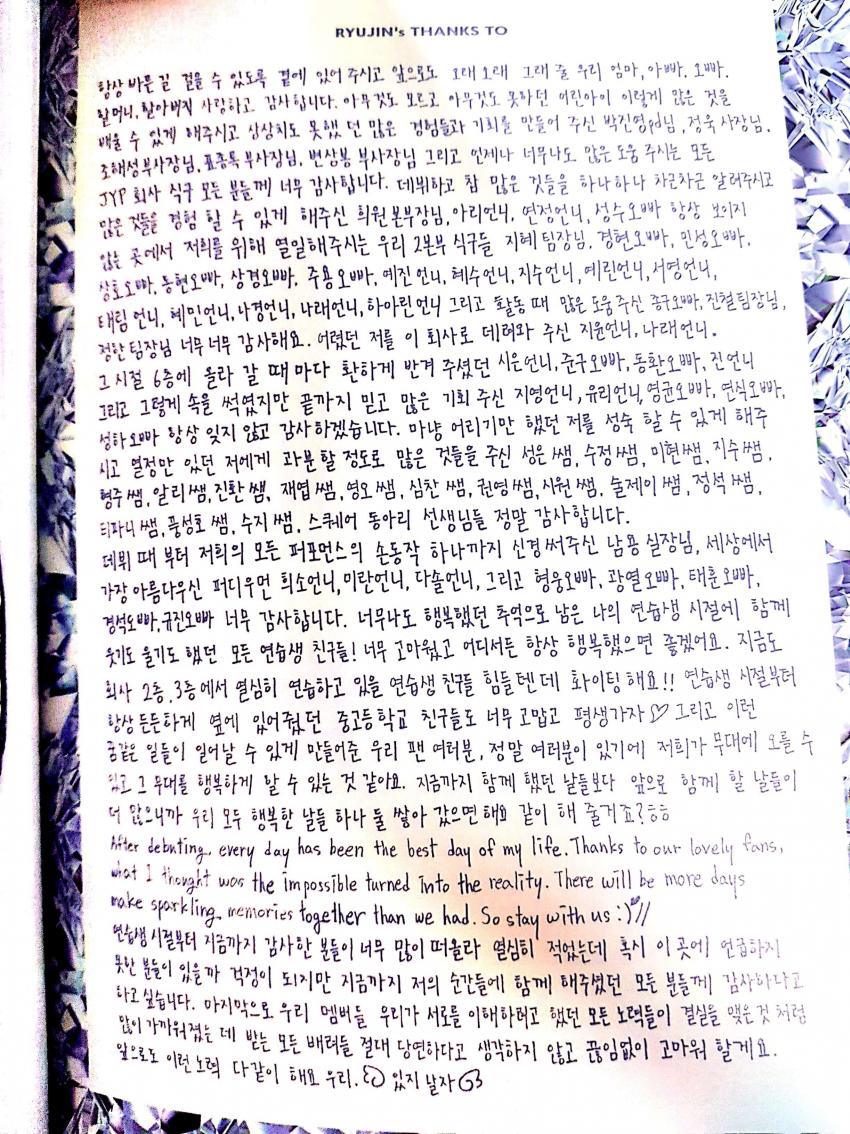 RYUJIN's THANKS TO
항상 바른길 걸을 수 있도록 곁에 있어 주시고 앞으로도 오래오래 그래 줄 우리 엄마, 아빠. 오빠.
할머니, 할아버지 사랑하고 감사합니다. 아무것도 모르고 아무것도 못하던 어린아이 이렇게 많은 것을
배울 수 있게 해주시고 상상치도 못했던 많은 경험들과 기회를 만들어 주신 박진영pd님, 정욱 사장님.
조해성부사장님, 표종록부사장님, 변상봉 부사장님 그리고 언제나 너무나도 많은 도움 주시는 모든
JYP 회사 식구 모든 분들께 너무 감사합니다. 데뷔하고 참 많은 것들을 하나하나 차근차근 알려주시고
많은 것들을 경험 할 수 있게 해주신 희원본부장님, 아리언니, 연정언니, 성수오빠 항상 보이지
않는 곳에서 저희를 위해 열일해주시는 우리 2본부 식구들 지혜팀장님, 경현오빠, 민성오빠.
상호오빠, 동현오빠, 상경오빠, 주용오빠, 예진언니, 혜수언니, 지수언니, 예린언니, 서영언니,
태림언니, 혜민언니, 나경언니, 나래언니, 하아린언니 그리고 활동 때 많은 도움 주신 종구오빠, 진철팀장님,
정한팀장님 너무 너무 감사해요. 어렸던 저를 이 회사로 데려와 주신 지윤언니, 나래언니.
그 시절 6층에 올라 갈 때 마다 환하게 반겨 주셨던 시은언니, 준구오빠, 동환오빠, 진언니
그리고 그렇게 속을 썩였지만 끝까지 믿고 많은 기회 주신 지영언니, 유리언니, 영균오빠, 연식오빠,
성하오빠 항상 잊지 않고 감사하겠습니다. 마냥 어리기만 했던 저를 성숙 할 수 있게 해주
시고 열정만 있던 저에게 과분할 정도로 많은 것들을 주신 성은쌤, 수정쌤, 미현쌤, 지수쌤,
형주쌤, 알리쌤, 진환쌤, 재엽쌤, 영오쌤, 심찬쌤, 권영쌤, 시원쌤, 술제이쌤, 정석쌤,
티파니쌤, 풍성호쌤, 수지쌤, 스퀘어 동아리 선생님들 정말 감사합니다.
데뷔 때 부터 저희의 모든 퍼포먼스의 손동작 하나까지 신경써주신 남용 실장님, 세상에서
가장 아름다우신 퍼디우먼 희소언니, 미란언니, 다솔언니, 그리고 형웅오빠, 광열오빠, 태훈오빠,
경석오빠, 규진오빠 너무 감사합니다. 너무나도 행복했던 추억으로 남은 나의 연습생 시절에 함께
웃기도 울기도 했던 모든 연습생 친구들! 너무 고마웠고 어디서든 항상 행복했으면 좋겠어요. 지금도
회사 2층, 3층에서 열심히 연습하고 있을 연습생 친구들 힘들텐데 화이팅해요!! 연습생 시절부터
항상 든든하게 옆에 있어줬던 중고등학교 친구들도 너무 고맙고 평생가자♡ 그리고 이런
꿈같은 일들이 일어날 수 있게 만들어준 우리 팬 여러분, 정말 여러분이 있기에 저희가 무대에 오를 수
있고 그 무대를 행복하게 할 수 있는 것 같아요. 지금까지 함께 했던 날들보다 앞으로 함께 할 날들이
더 많으니까 우리 모두 행복한 날들 하나 둘 쌓아 갔으면 해요 같이 해 줄거죠? ㅎㅎ
After debuting, every day has been the best day of my life. Thanks to our lovely fans,
what I thought was the impossible turned into the reality. There will be more days
make sparkling memories together than we had. So stay with us :)"//
연습생 시절부터 지금까지 감사한 분들이 너무 많이 떠올라 열심히 적었는데 혹시 이 곳에 언급하지
못한 분들이 있을까 걱정이 되지만 지금까지 저의 순간들에 함께 해주셨던 모든 분들께 감사하다고
하고싶습니다. 마지막으로 우리 멤버들 우리가 서로를 이해하려고 했던 모든 노력들이 결실을 맺은것 처럼
많이 가까워졌는 데 받는 모든 배려들 절대 당연하다고 생각하지 않고 끊임없이 고마워 할게요.
앞으로도 이런 노력 다같이 해요 우리. 있지 날자